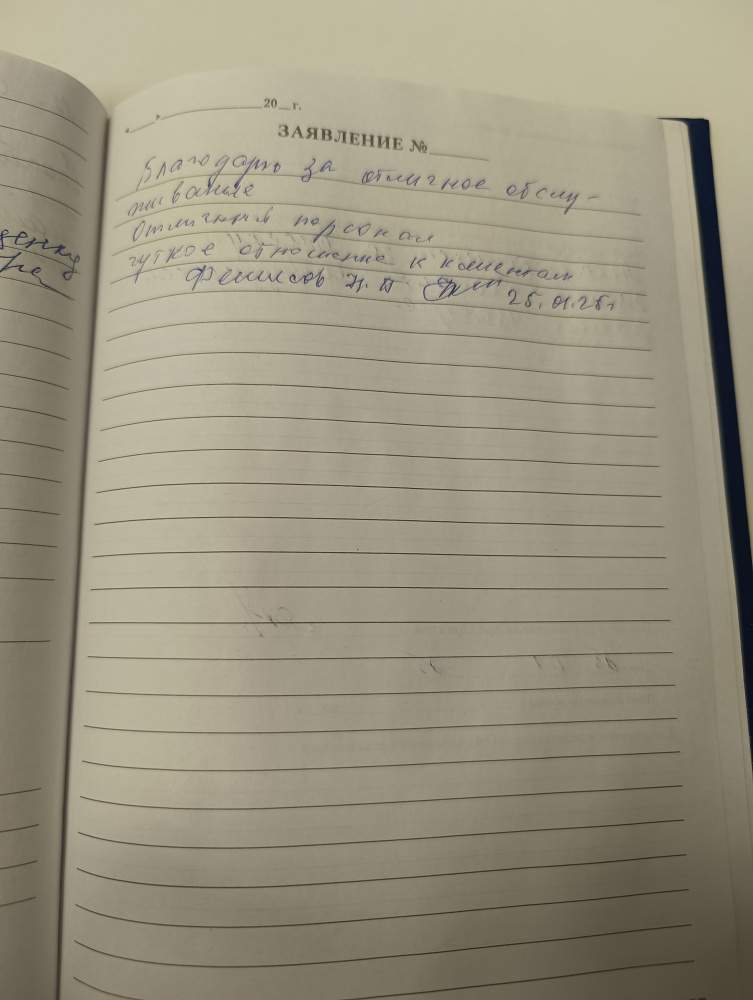 "___"____________20__г.
ЗАЯВЛЕНИЕ №______
Благодарю за отличное обслу-
живание
Отличный персонал
чуткое отношение к клиентам
Фенисов Н.П 25.01.25г